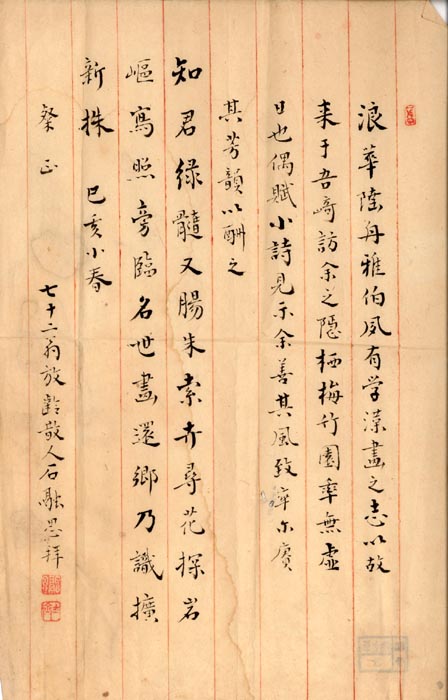 浪華陸舟雅伯夙有学漢畫之志以故
来于吾﨑訪余之隠栖梅竹園率無虚
日也偶賦小詩見示余善其風致率尓賡
其芳韻以酬之
知君緑髓又腸朱索方尋花探岩
嶇寫照旁臨名世畫還郷乃識擴
新株 己亥小春
粲正
七十二翁放齡散人石融思拜